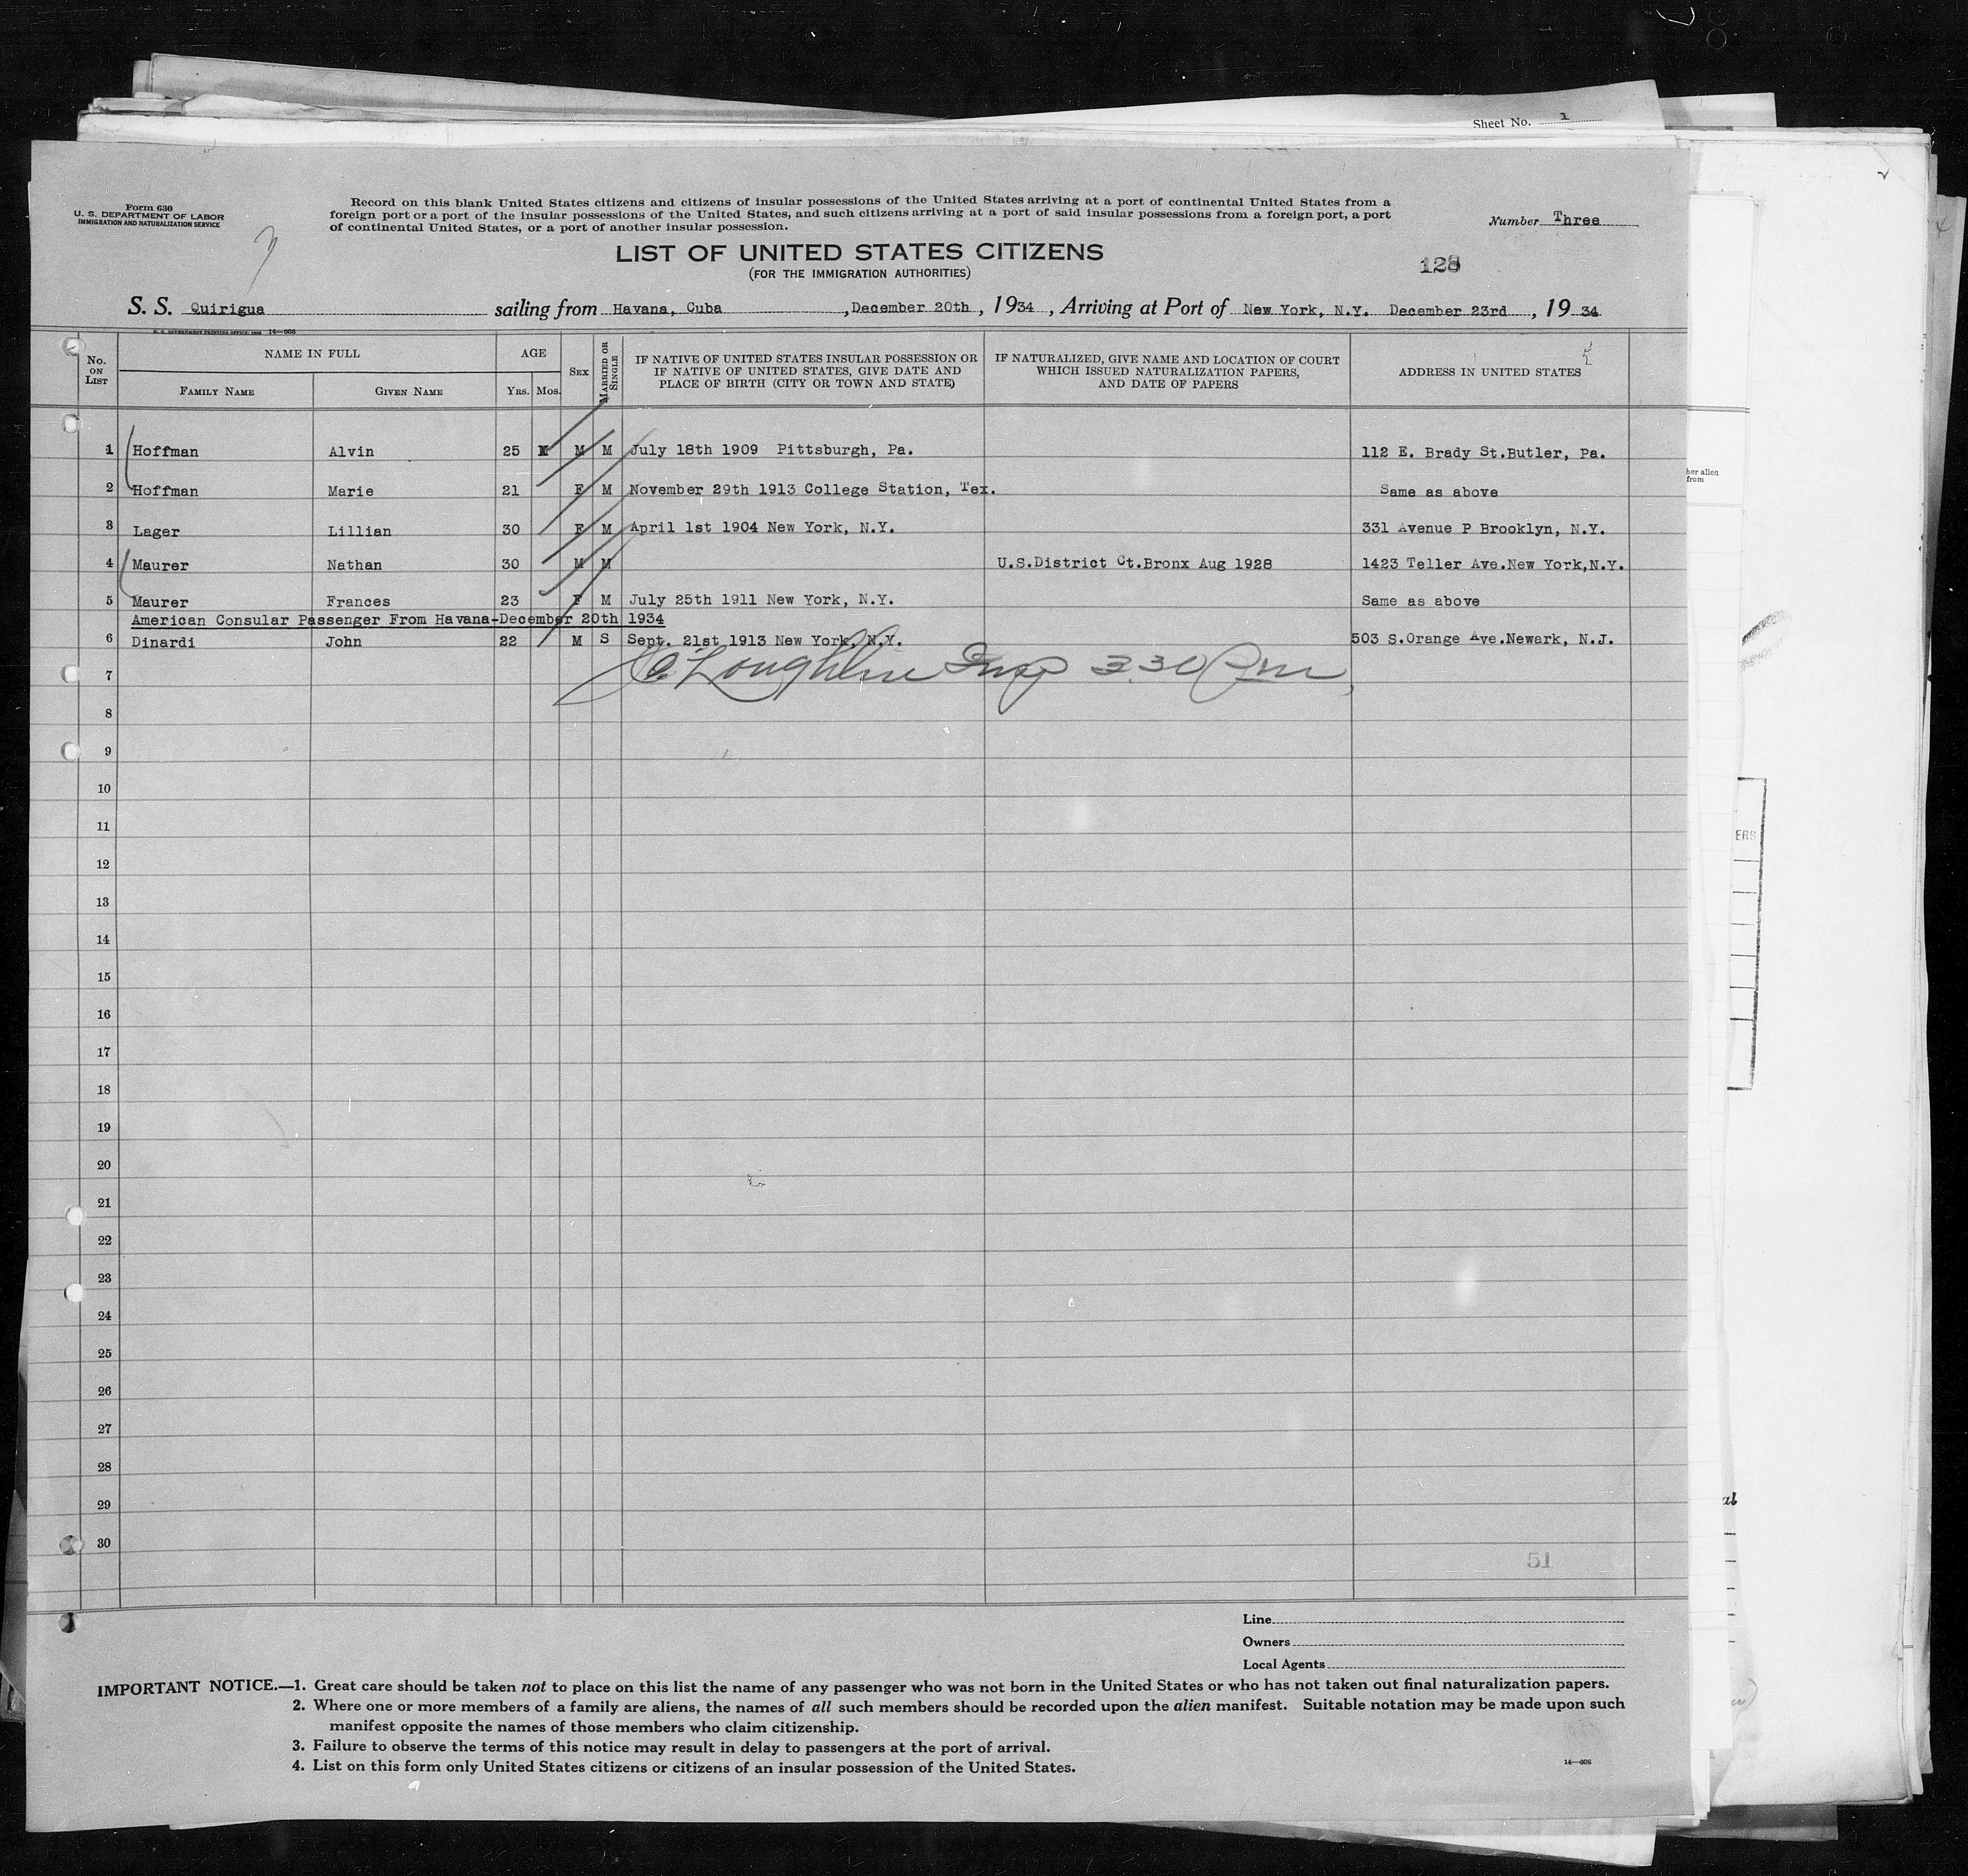 Sheet No. 1
Form 630
U. S. DEPARTMENT OF LABOR
IMMIGRATION AND NATURALIZATION SERVICE
Record on this blank United States citizens and citizens of insular possessions of the United States arriving at a port of continental United States from a
foreign port or a port of the insular possessions of the United States, and such citizens arriving at a port of said insular possessions from a foreign port, a port
of continental United States, or a port of another insular possession.
Number Three
LIST OF UNITED STATES CITIZENS
(FOR THE IMMIGRATION AUTHORITIES)
128
S. S. Quirigua sailing from Havana, Cuba, December 20th, 1934, Arriving at Port of New York, N.Y. December 23rd, 1934
U. S. GOVERNMENT PRINTING OFFICE 14—608
No. ON LIST NAME IN FULL AGE SEX MARRIED OR SINGLE IF NATIVE OF UNITED STATES INSULAR POSSESSION OR IF NATIVE OF UNITED STATES, GIVE DATE AND PLACE OF BIRTH (CITY OR TOWN AND STATE) IF NATURALIZED, GIVE NAME AND LOCATION OF COURT WHICH ISSUED NATURALIZATION PAPERS, AND DATE OF PAPERS ADDRESS IN UNITED STATES
FAMILY NAME GIVEN NAME YRS. MOS.
1 Hoffman Alvin 25 M M July 18th 1909 Pittsburgh, Pa. 112 E. Brady St.Butler, Pa.
2 Hoffman Marie 21 F M November 29th 1913 College Station, Tex. Same as above
3 Lager Lillian 30 F M April 1st 1904 New York, N.Y. 331 Avenue P Brooklyn, N.Y.
4 Maurer Nathan 30 M M U.S.District Ct.Bronx Aug 1928 1423 Teller Ave.New York,N.Y.
5 Maurer Frances 23 F M July 25th 1911 New York, N.Y. Same as above
American Consular Passenger From Havana-December 20th 1934
6 Dinardi John 22 M S Sept. 21st 1913 New York, N.Y. 503 S.Orange Ave.Newark, N.J.
7 O'Loughlin Insp 3.30 Pm
8
9
10
11
12
13
14
15
16
17
18
19
20
21
22
23
24
25
26
27
28
29
30
51
Line
Owners
Local Agents
IMPORTANT NOTICE.—1. Great care should be taken not to place on this list the name of any passenger who was not born in the United States or who has not taken out final naturalization papers.
2. Where one or more members of a family are aliens, the names of all such members should be recorded upon the alien manifest. Suitable notation may be made upon such
manifest opposite the names of those members who claim citizenship.
3. Failure to observe the terms of this notice may result in delay to passengers at the port of arrival.
4. List on this form only United States citizens or citizens of an insular possession of the United States.
14—608